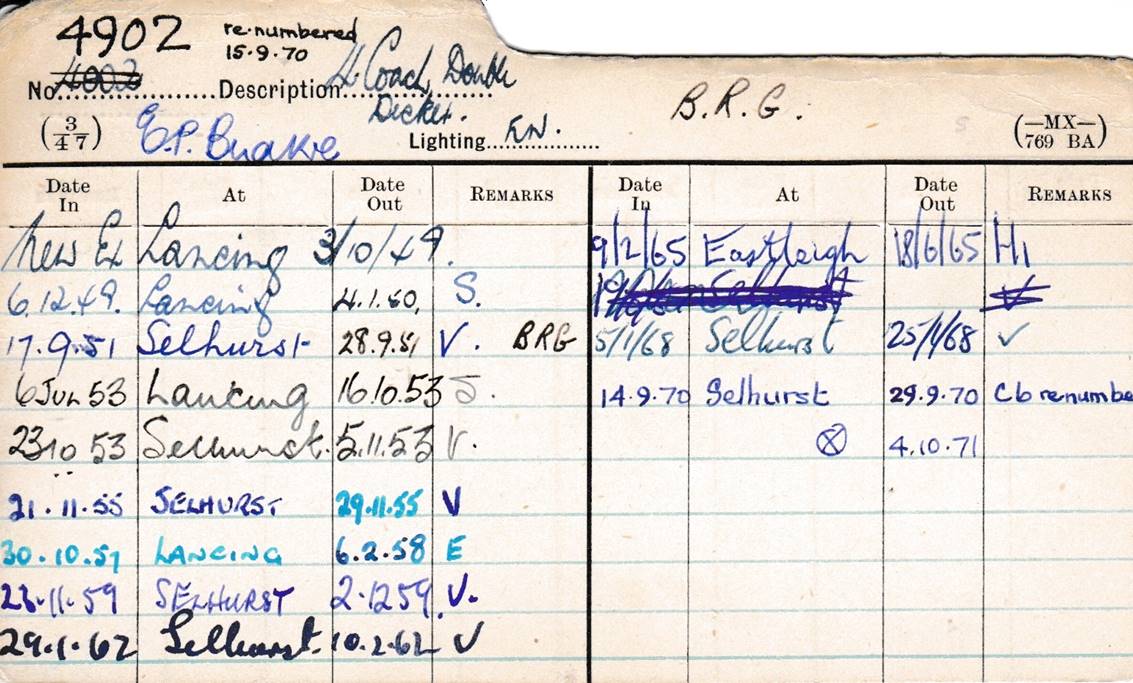 4902 re-numbered
15.9.70
No. 4002 Description 4 Coach Double
Decker.
B.R.G.
(3/47) E.P. Brake Lighting EN. (—MX—/769 BA)
Date In At Date Out REMARKS Date In At Date Out REMARKS
New Ex Lancing 3/10/49.
6.12.49. Lancing 4.1.50, S.
17.9.51 Selhurst 28.9.51 V. BRG
6 JUL 53 Lancing 16.10.53 S.
23 10 53 Selhurst. 5.11.53 V.
21.11.55 SELHURST 29.11.55 V
30.10.57 LANCING 6.2.58 E
23.11.59 SELHURST 2.12 59. V.
29.1.62 Selhurst. 10.2.62 V
9/2/65 Eastleigh 18/6/65 H1
Selhurst V
5/1/68 Selhurst 25/1/68 ✓
14.9.70 Selhurst 29.9.70 C6 renumbe
⊗ 4.10.71